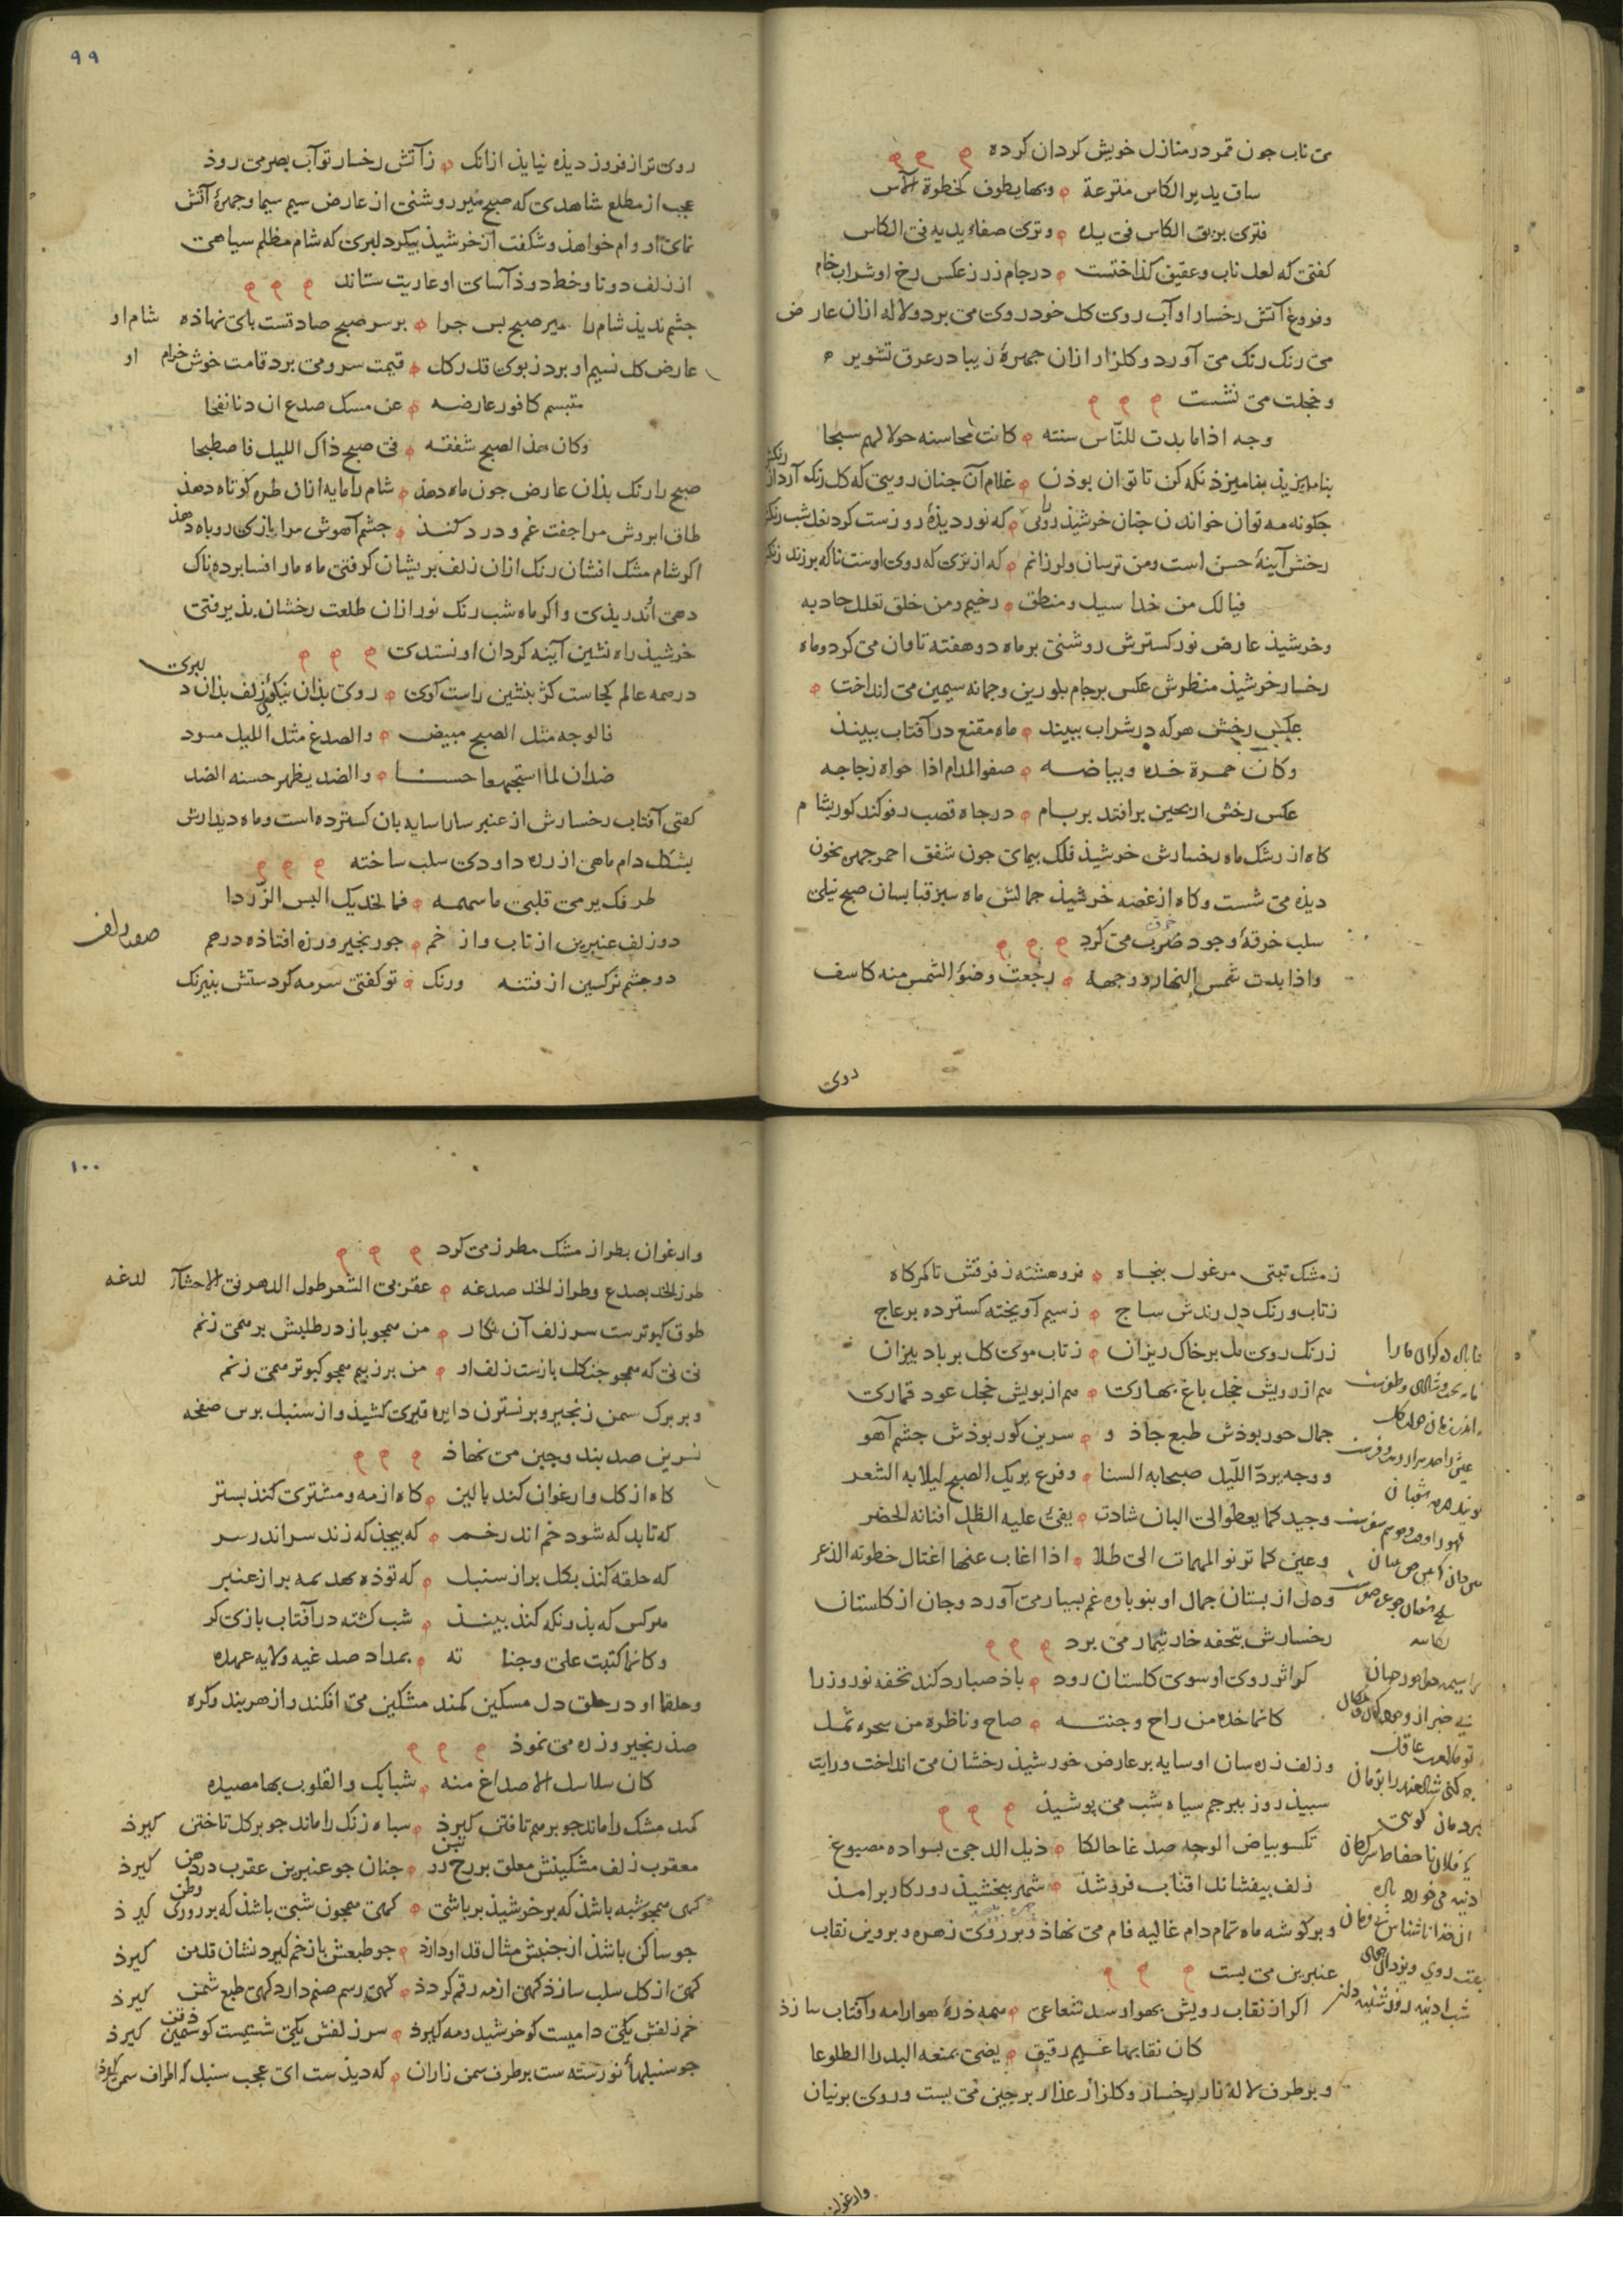 می ناب جون قمر در منازل خویش کردان کرده
ساق یدیر الکاس منترعة وبها یطوف کخطوة الآس
فتری بریق الکاس فی یده وتری صفاء یدیه فی الکاس
کفتی که لعل ناب وعقیق کذاختست در جام زر زعکس رخ او شراب خام
وفروغ آتش رخسار او آب روی کل خود روی می برد ولاله ازان عارض
می رنک رنک می آورد وکلزار ازان جهرهٔ زیبا در عرق تشویر
وخجلت می نشست
وجه اذا ما بدت للناس سنته کانت محاسنه حولا لهم سبحا
نکه کن تا توان بوذن غلام آن جنان رویی که کل رنک آرد از رنکش
جکونه مه توان خواندن جنان خرشیذ رویی که نور دیذهٔ روزست کرد نعل شب رنکش
رخش آینهٔ حسن است ومن ترسان ولرزانم که از تری که روی اوست ناکه برزند زنک
فیا لک من خد اسیل ومنطق رخیم ومن خلق تعلل جادبه
وخرشیذ عارض نور کسترش روشنی بر ماه دو هفته تاوان می کرد وماه
رخسار خرشیذ منظرش عکس بر جام بلورین وجمانه سیمین می انداخت
عکس رخش هرکه در شراب ببیند ماه مقنع در آفتاب ببیند
وکان حمرة خده وبیاضه صفو المدام اذا حواه زجاجه
عکس رخش ار بحین برافتد بر بام در جاه قصب رفو کند کور بشام
کاه از رشک ماه رخسارش خرشیذ فلک بیمای جون شفق احمر جهره بخون
دیذه می شست وکاه از غصه خرشیذ جمالش ماه سبز قبا بسان صبح نیلی
سلب خرقهٔ وجود ضرب می کرد
خرق
واذا بدت شمس النهار ووجهه رجعت وضوؤ الشمس منه کاسف
روی
٩٩
روی تو از فروز دیذه نیایذ ازانک ز آتش رخسار تو آب بصر می روذ
عجب از مطلع شاهدی که صبح منیر روشنی از عارض سیم سیما وجهرهٔ آتش
نمای او وام خواهذ وشکفت از خرشیذ بیکر دلبری که شام مظلم سیاهی
از زلف دوتا وخط دوذ آسای او عاریت ستاند
جشم ندیذ شام را میر صبح بس جرا بر سر صبح صادقست بای نهاذه شام او
عارض کل نسیم او برد ز بوی قدر کل قیمت سرو می برد قامت خوش خرام او
متبسم کافور عارضه عن مسک صدغ ان دنا نفحا
وکان هذا الصبح شفقه فی صبح ذاک اللیل فاصطبحا
صبح را رنک بذان عارض جون ماه دهذ شام را مایه ازان طره کوتاه دهذ
طاق ابروش مرا جفت غم ودرد کند جشم آهوش مرا بازی روباه دهذ
اکر شام مشک افشان رنک ازان زلف بریشان کرفتی ماه مار افسا بر ده ناک
دهی اندریذی واکر ماه شب رنک نور ازان طلعت رخشان بذیرفتی
خرشیذ راه نشین آینه کردان او نستدی
در همه عالم کجاست کژ بنشین راست کوی روی بذان نیکوی زلف بذان دلبری
فالوجه مثل الصبح مبیض والصدغ مثل اللیل مسود
ضدان لما استجمعا حسنا والضد یظهر حسنه الضد
کفتی آفتاب رخسارش از عنبر سارا سایه بان کسترده است وماه دیدارش
بشکل دام ماهی از زره داودی سلب ساخته
طرفک یرمی قلبی باسهمه فما لخدیک البس الزردا
دو زلف عنبرین از تاب واز خم جو زنجیر وزره افتاذه در هم
دو جشم نرکسین از فتنه ورنک تو کفتی سرمه کردستش بنیرنک
ز مشک تبتی مرغول بنجاه فروهشته ز فرقش تا کمرکاه
ز تاب ورنک دل رندش ساج ز سیم آویخته کسترده بر عاج
ز رنک روی مل بر خاک ریزان ز تاب موی کل بر باد بیزان
هم از رویش خجل باغ بهاری هم از بویش خجل عود قماری
جمال حور بوذش طبع جاذو سرین کور بوذش جشم آهو
ووجه یرد اللیل صبحا به السنا وفرع یریک الصبح لیلا به الشعر
وجید کما یعطو الی البان شادن یفئ علیه الظل افنانه الخضر
وعین کما ترنو المهمات الی طلا اذا اغاب عنها اغتال خطوته الذعر
ودل از بستان جمال او بنوباوه غم بسیار می آورد وجان از کلستان
رخسارش بتحفه خار تیمار می برد
کر اثر روی او سوی کلستان رود باذ صبا رد کند تحفه نوروز را
کانما خده من راح وجنته صاح وناظره من سحره ثمل
وزلف زره سان او سایه بر عارض خورشیذ رخشان می انداخت ورایت
سبیذ روز ببرجم سیاه شب می بوشیذ
تکسو بیاض الوجه صدغا حالکا ذیل الدجی بسواده مصبوغ
زلف بیفشاند افتاب فروشذ شهر ببخشیذ روزکار برامذ
وبر کوشه ماه تمام دام غالیه فام می نهاذ وبر روی زهره وبروین نقاب
عنبرین می بست
اکر از نقاب رویش بهوا رسد شعاعی همه ذرهٔ هوا را مه وآفتاب سازذ
کان نقابها غیم رقیق یضئ بمنعه البدر الطلوعا
وبر طرف لاله زار رخسار وکلزار عذار برجین می بست وروی برنیان
وارغوان
١٠٠
وارغوان بطراز مشک مطرز می کرد
طرز الخد بصدغ وطراز الخد صدغه عقربی الشعر طول الدهر فی الاحشاء لدغه
طوق کبوترست سر زلف آن نکار من همجو باز در طلبش بر همی زنم
نی نی که همجو جنکل بازست زلف او من بر ز بیم همجو کبوتر همی زنم
وبر برک سمن زنجیر وبر نسترن دایره قیری کشیذ واز سنبل بوس صفحه
نسرین صد بند وجین می نهاذ
کاه از کل وارغوان کند بالین کاه از مه ومشتری کند بستر
که تابد که شود خم اندر خم که بیجذ که زند سر اندر سر
که حلقه کند بکل بر از سنبل که توذه نهد بمه بر از عنبر
هرکس که بذو نکه کند بیند شب کشته در آفتاب بازی کر
وکانما کتبت علی وجناته بمداد صدغیه ولایه عهده
وحلقا او در حلق دل مسکین کمند مشکین می افکند واز هر بند وکره
صذ زنجیر وزره می نموذ
کان سلاسل الاصداغ منه شبایک والقلوب بها مصیده
کمند مشک را ماند جو بر مه تافتن کیرذ سپاه زنک را ماند جو بر کل تاختن کیرذ
معقرب زلف مشکینش معلق بر رخ جنان جو عنبرین عقرب در دهن کیرذ
کهی همجو شبه باشذ که بر خورشیذ بر باشی کهی همجون شبی باشذ که بر روزی وطن کیرذ
جو ساکن باشذ از جنبش مثال قد او دارد جو طبعش باز خم کیرد نشان قد من کیرذ
کهی از کل سلب سازذ کهی از مه رقم کرذذ کهی رسم صنم دارد کهی طبع شمن کیرذ
خم زلفش یکی دامیست کو خرشید ومه کیرذ سر زلفش یکی شستیست کو سیمین ذقن کیرذ
جو سنبلها نو رسته ست بر طرف سمن زاران که دیذست ای عجب سنبل که اطراف سمن کیرذ